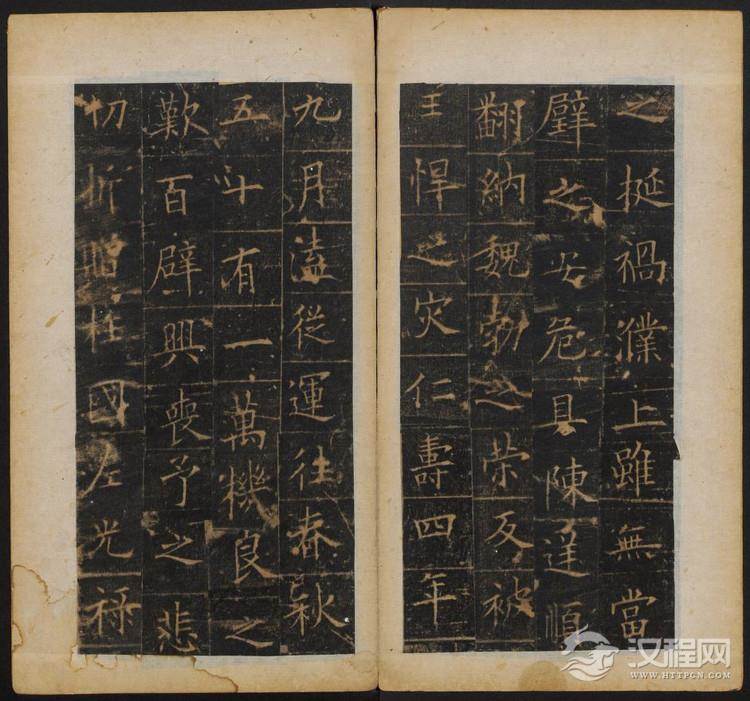 之挻禍濮上雖無當
璧之安危具陳逆順
翻納魏勃之荣反被
王悍之灾仁壽四年
九月溘從運往春秋
五十有一萬機良之
歎百辟興喪予之悲
切折贈柱國左光祿
汉程网
WWW.HTTPCN.COM